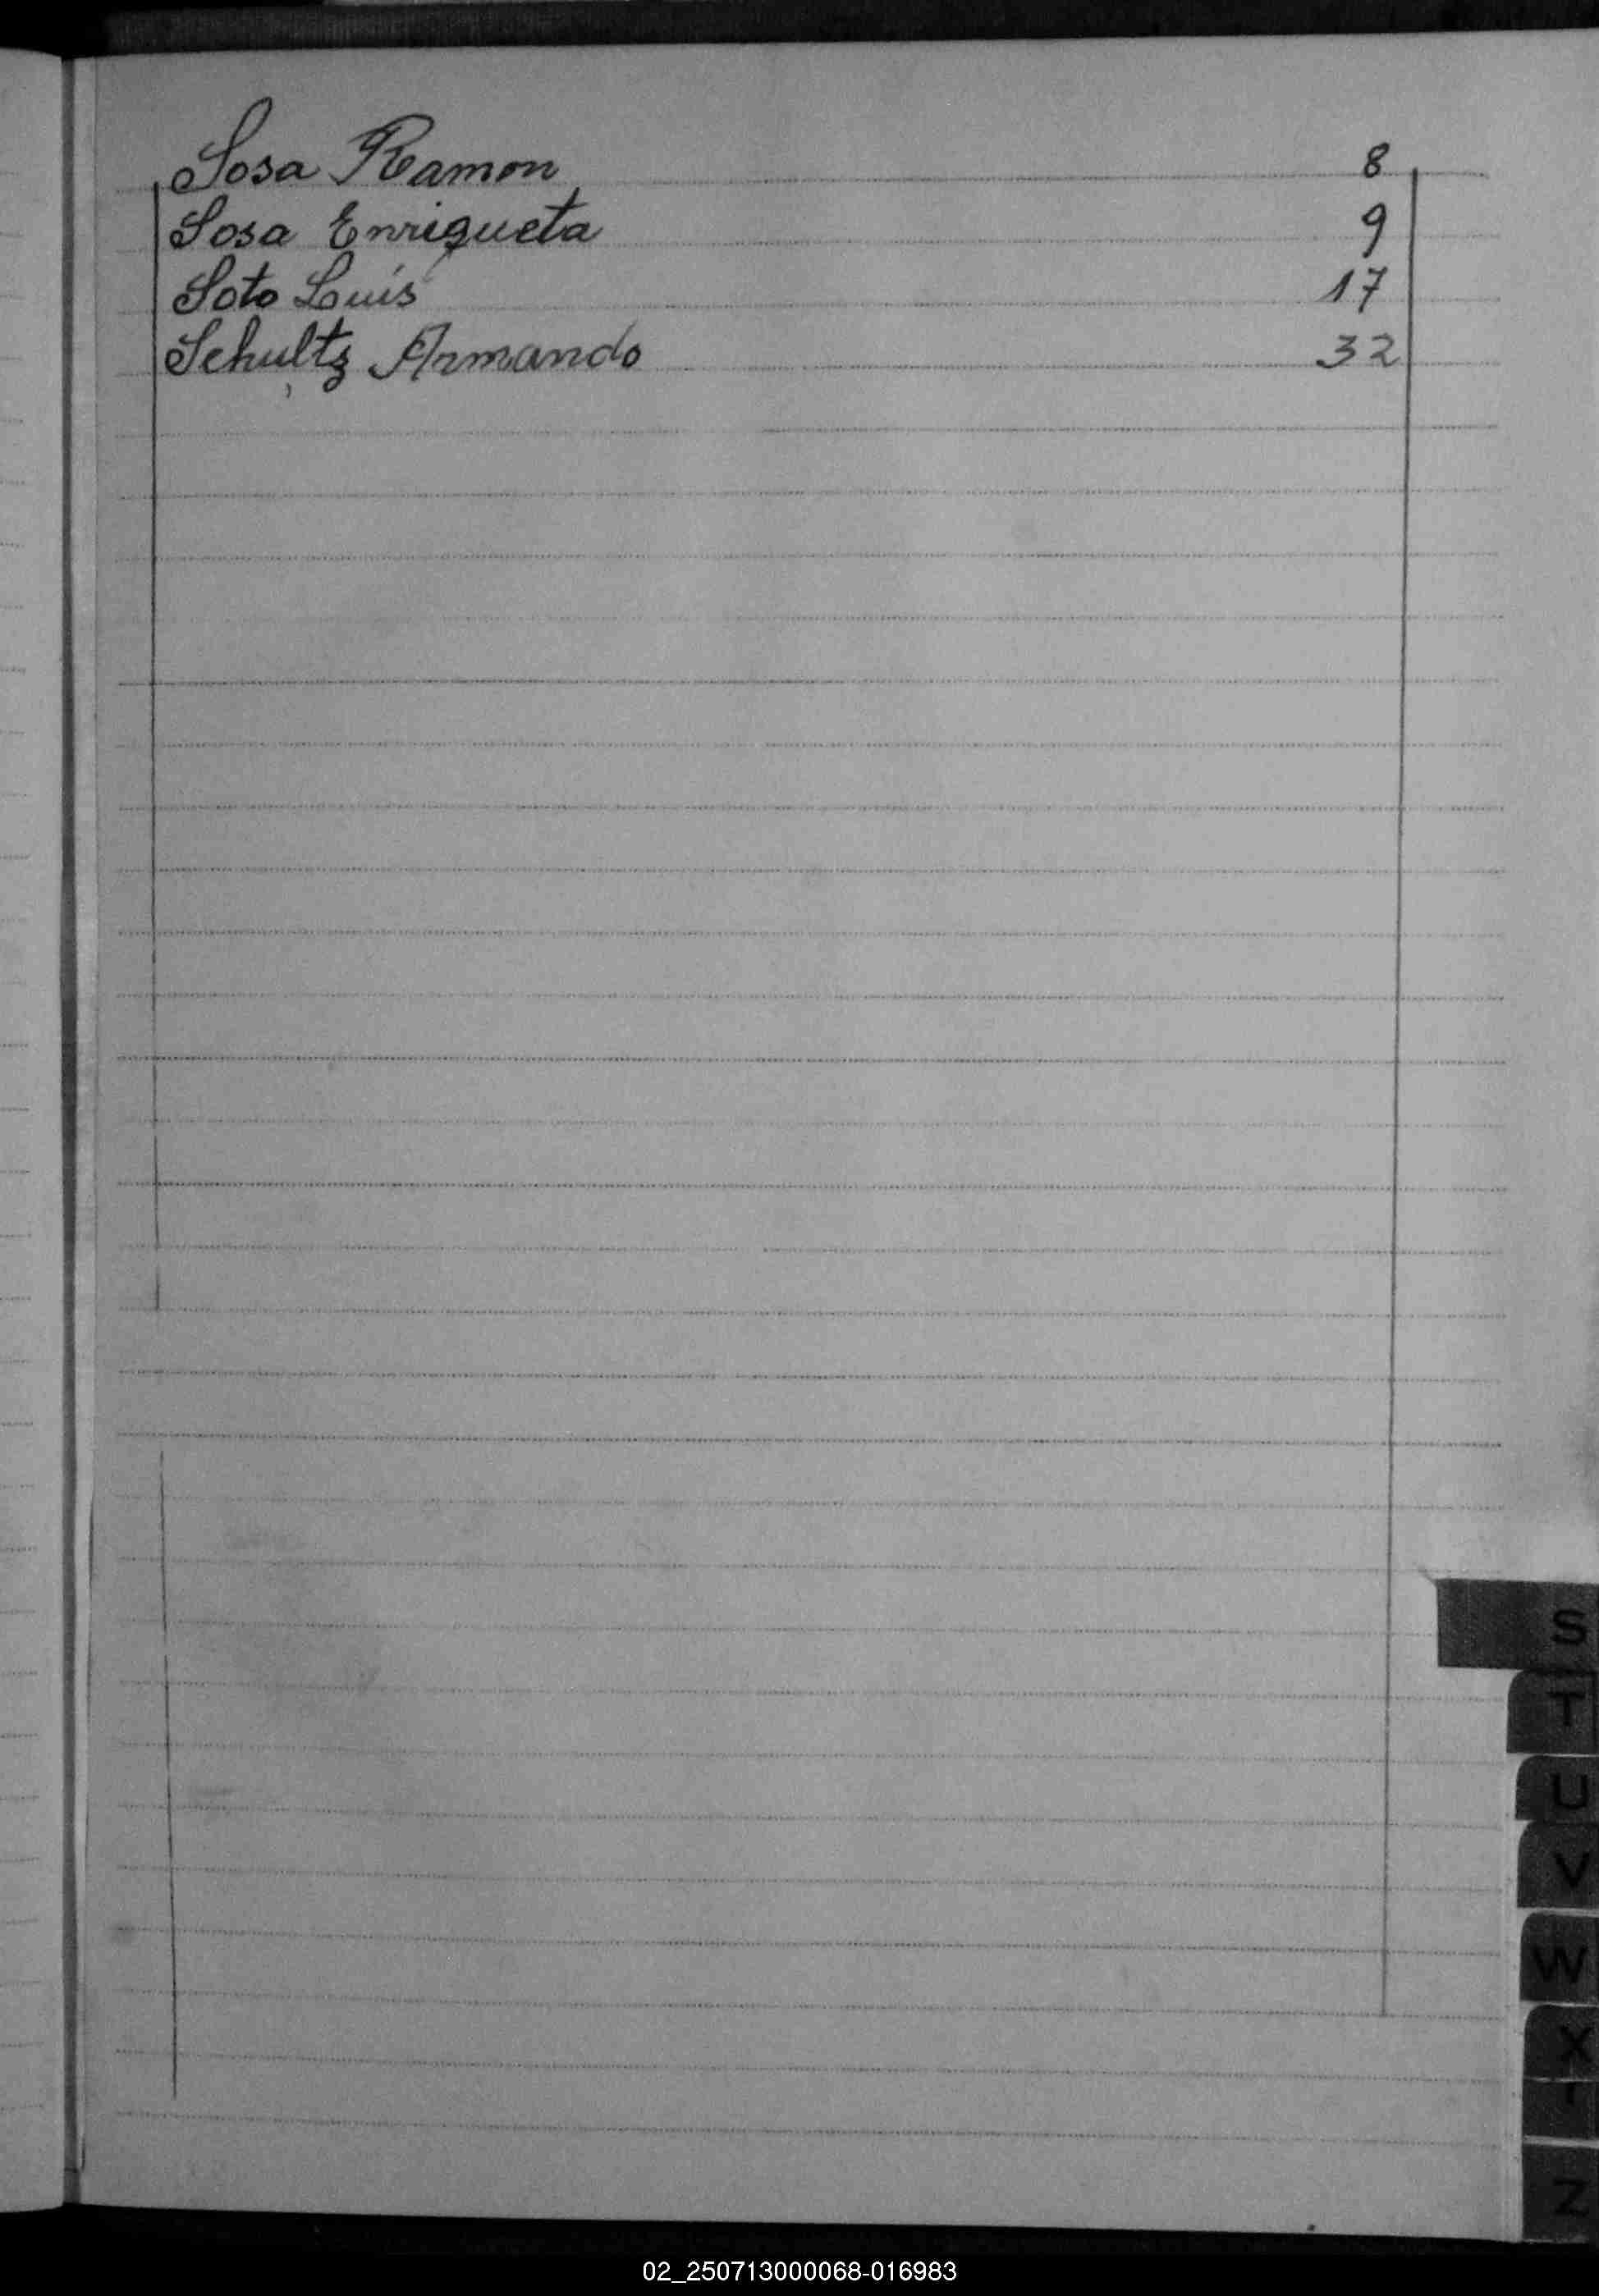 Sosa Ramon 8
Sosa Enriqueta 9
Soto Luis 17
Schultz Armando 32
S
T
U
V
W
X
Z
02_250713000068-016983